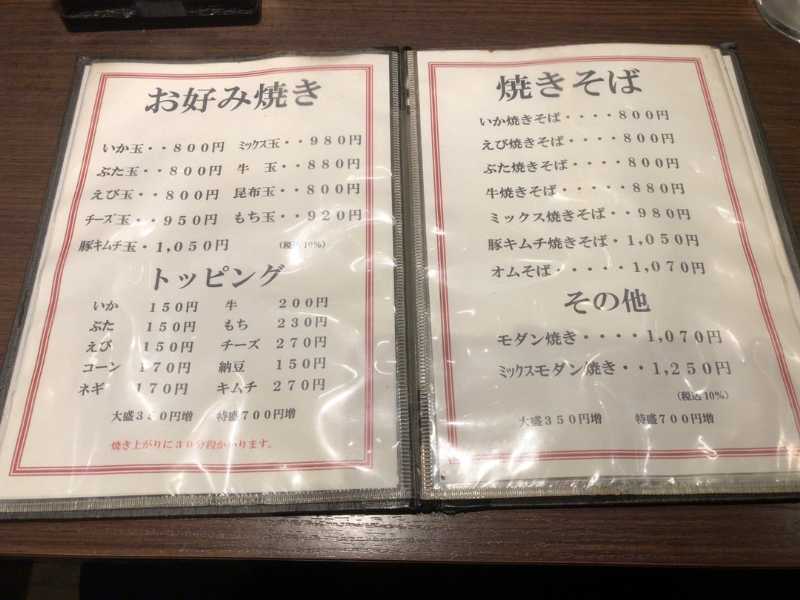 お好み焼き
いか玉・・800円 ミックス玉・・980円
ぶた玉・・800円 牛 玉・・880円
えび玉・・800円 昆布玉・・800円
チーズ玉・・950円 もち玉・・920円
豚キムチ玉・1,050円 (税込10%)
トッピング
いか 150円 牛 200円
ぶた 150円 もち 230円
えび 150円 チーズ 270円
コーン 170円 納豆 150円
ネギ 170円 キムチ 270円
大盛350円増 特盛700円増
焼き上がりに30分段かかります。
焼きそば
いか焼きそば・・・・800円
えび焼きそば・・・・800円
ぶた焼きそば・・・・800円
牛焼きそば・・・・・880円
ミックス焼きそば・・980円
豚キムチ焼きそば・1,050円
オムそば・・・・・1,070円
その他
モダン焼き・・・・1,070円
ミックスモダン焼き・・1,250円
(税込10%)
大盛350円増 特盛700円増